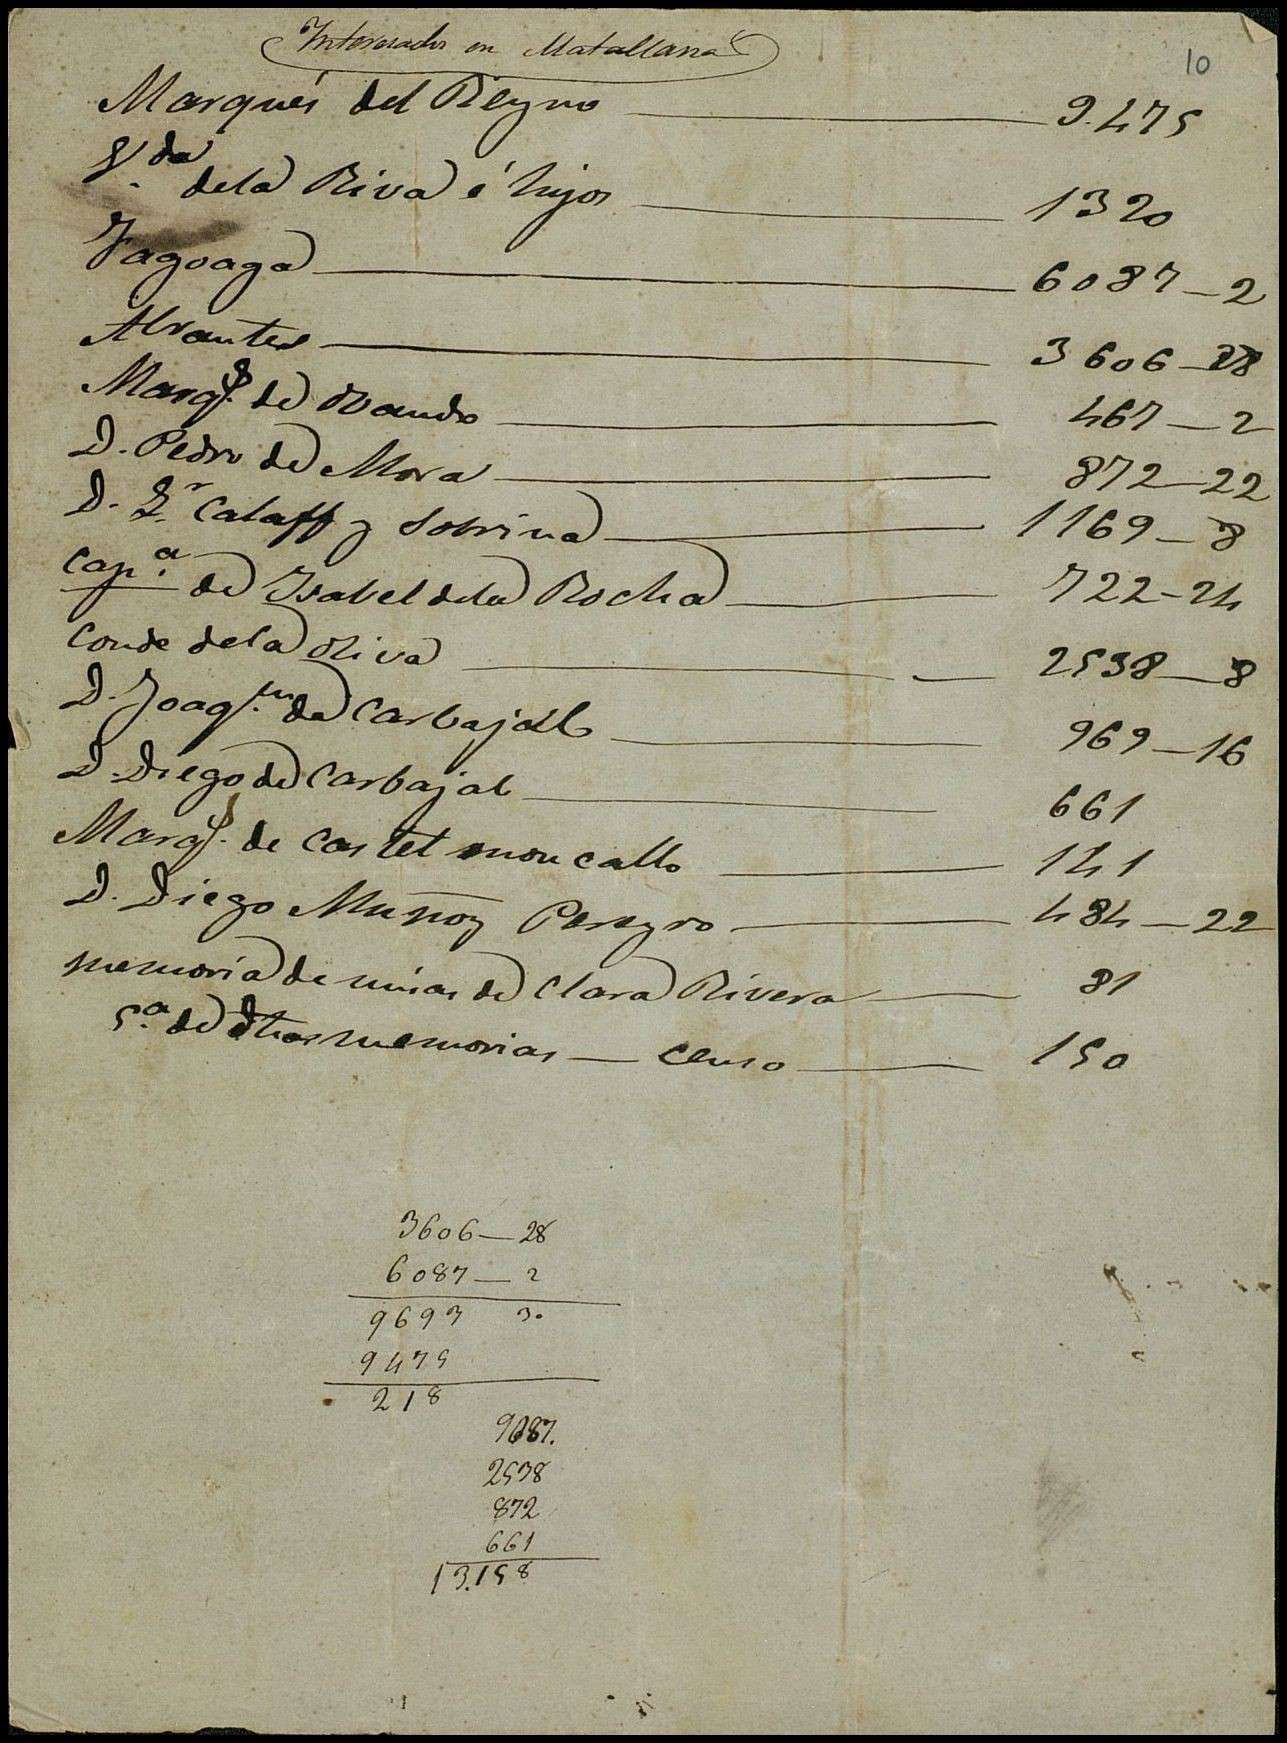 Interesados en Matallana
10
Marqués del Reyno 9.475
V.da dela Riva é hijos 1320
Fagoaga 6087-2
Abrantes 3606-28
Marq.s de Ovando 467-2
D. Pedro de Mora 872-22
D. Calaff y Sobrina 1169-8
Cap.a de Ysabel dela Rocha 722-24
Conde dela Oliva 2538-8
D. Joaq.n de Carbajal 969-16
D. Diego de Carbajal 661
Marq.s de Castel moncallo 141
D. Diego Muñoz Pereyro 484-22
memoria de misas de Clara Rivera 81
de dhas memorias - censo 150
3606-28
6087-2
9693 30
9475
218
9087.
2538
872
661
13.158